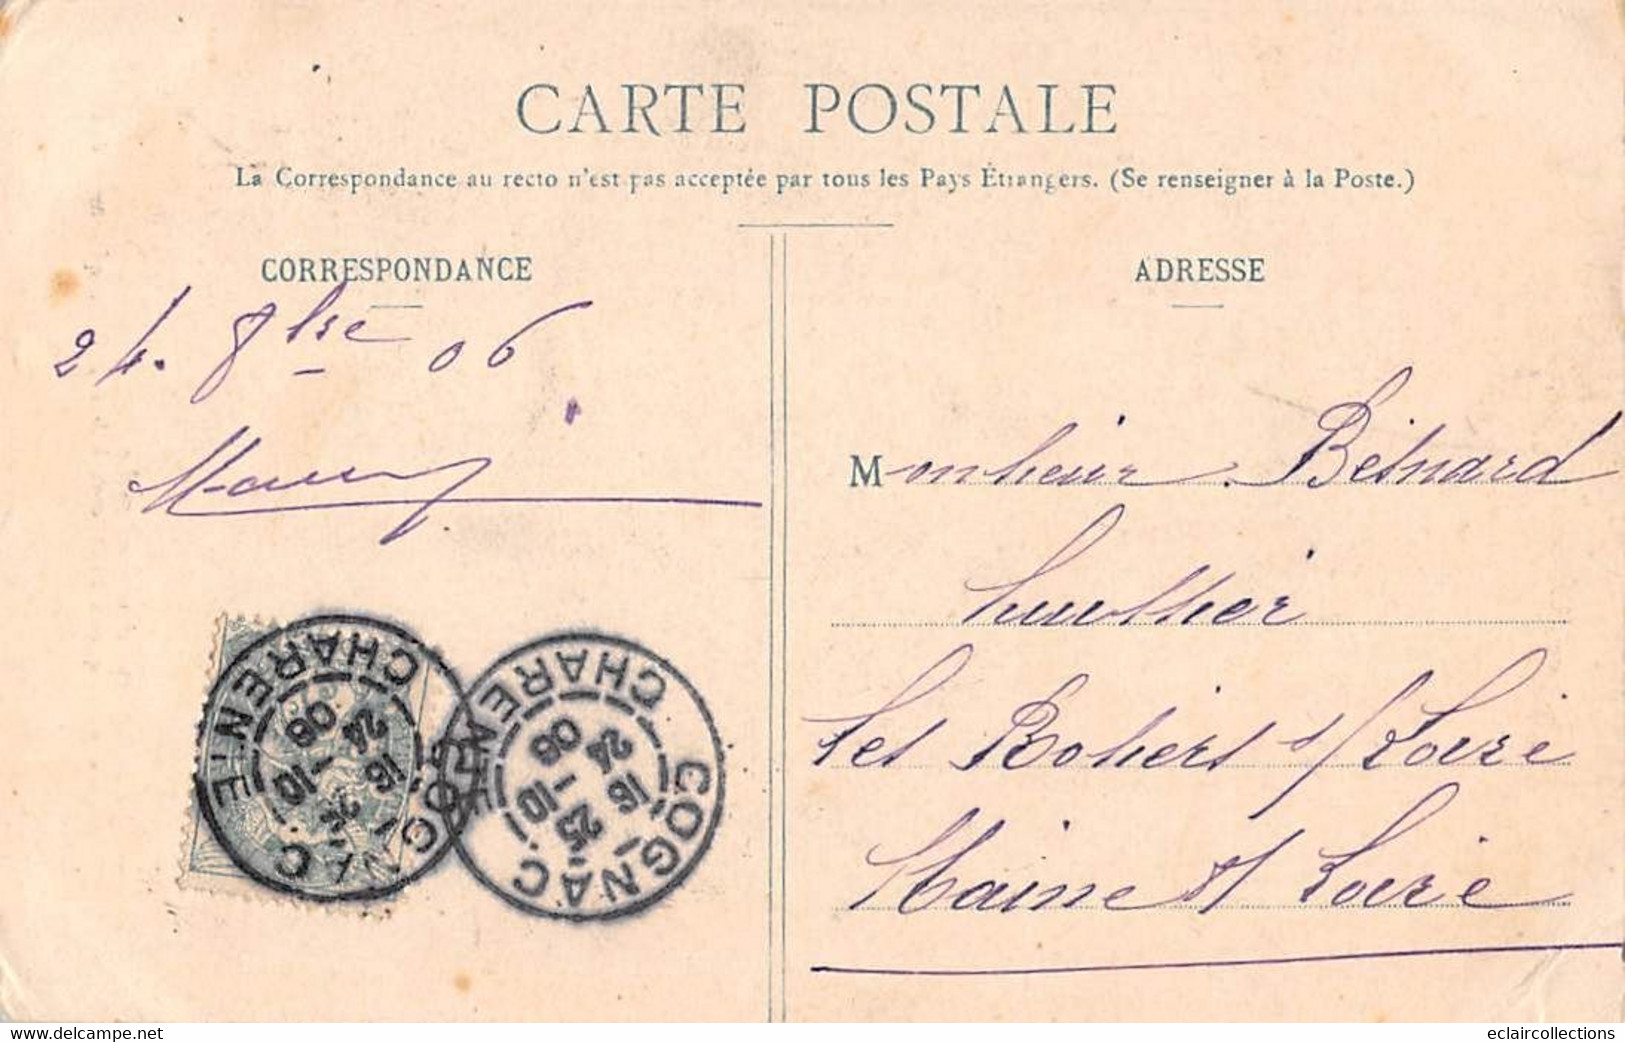 CARTE POSTALE
La Correspondance au recto n'est pas acceptée par tous les Pays Étrangers. (Se renseigner à la Poste.)
CORRESPONDANCE
24. 8bre 06
ADRESSE
Monsieur Besnard
Les Rosiers s/ Loire
Maine s/ Loire
COGNAC
CHARENTE
16 24
10 06
COGNAC
CHARENTE
23
16 24
10 06
www.delcampe.net
eclaircollections